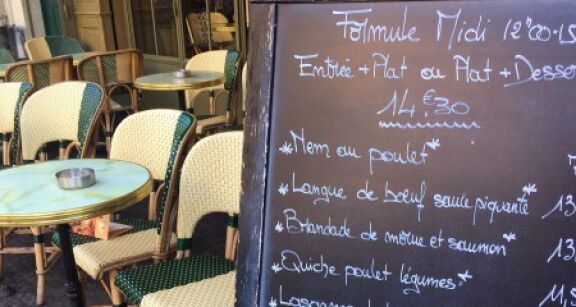 Formule Midi 12h00-15
Entrée + Plat ou Plat + Desse
14€30
*Nem au poulet*
*Langue de bœuf sauce piquante* 13,
*Brandade de morue et saumon* 13,
*Quiche poulet légumes*